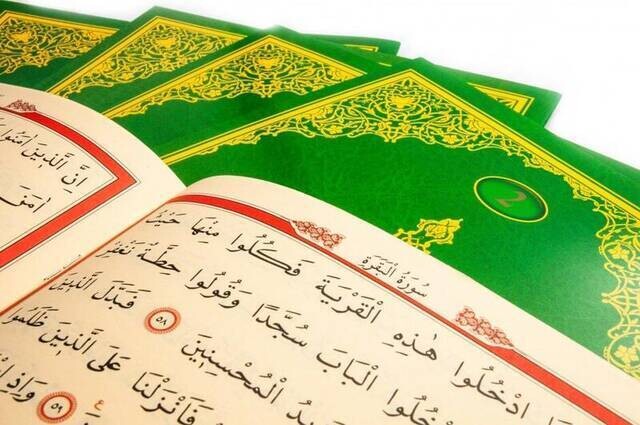 2
اِنَّ الَّذ۪ينَ اٰمَنُوا
اٰمَنَ
سُورَةُ الْبَقَرَةِ
ادْخُلُوا هٰذِهِ الْقَرْيَةَ فَكُلُوا مِنْهَا حَيْثُ
الْبَابَ سُجَّدًا وَقُولُوا حِطَّةٌ نَغْفِرْ
الْمُحْسِن۪ينَ ٥٨ فَبَدَّلَ الَّذ۪ينَ
فَاَنْزَلْنَا عَلَى الَّذ۪ينَ ظَلَمُوا
٥٩ وَاِذِ